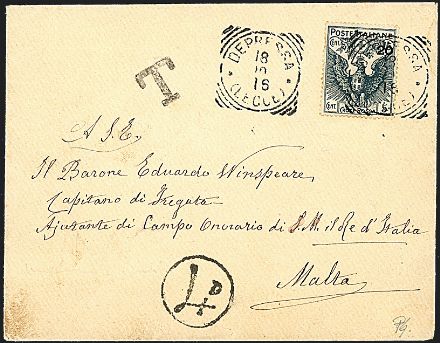 DEPRESSA
18
16
(LECCE)
POSTE ITALIANE
20
T
A S. E.
Il Barone Eduardo Winspeare
Capitano di Fregata
Ajutante di Campo Onorario di S. M. il Re d'Italia
Malta
4D